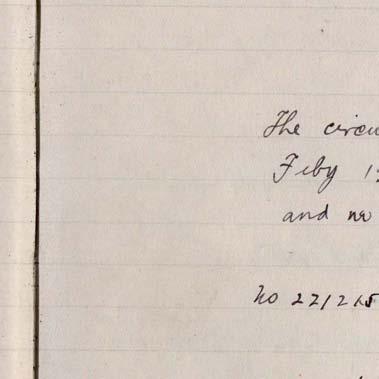 The circu
Feby 1
and no
No 221265